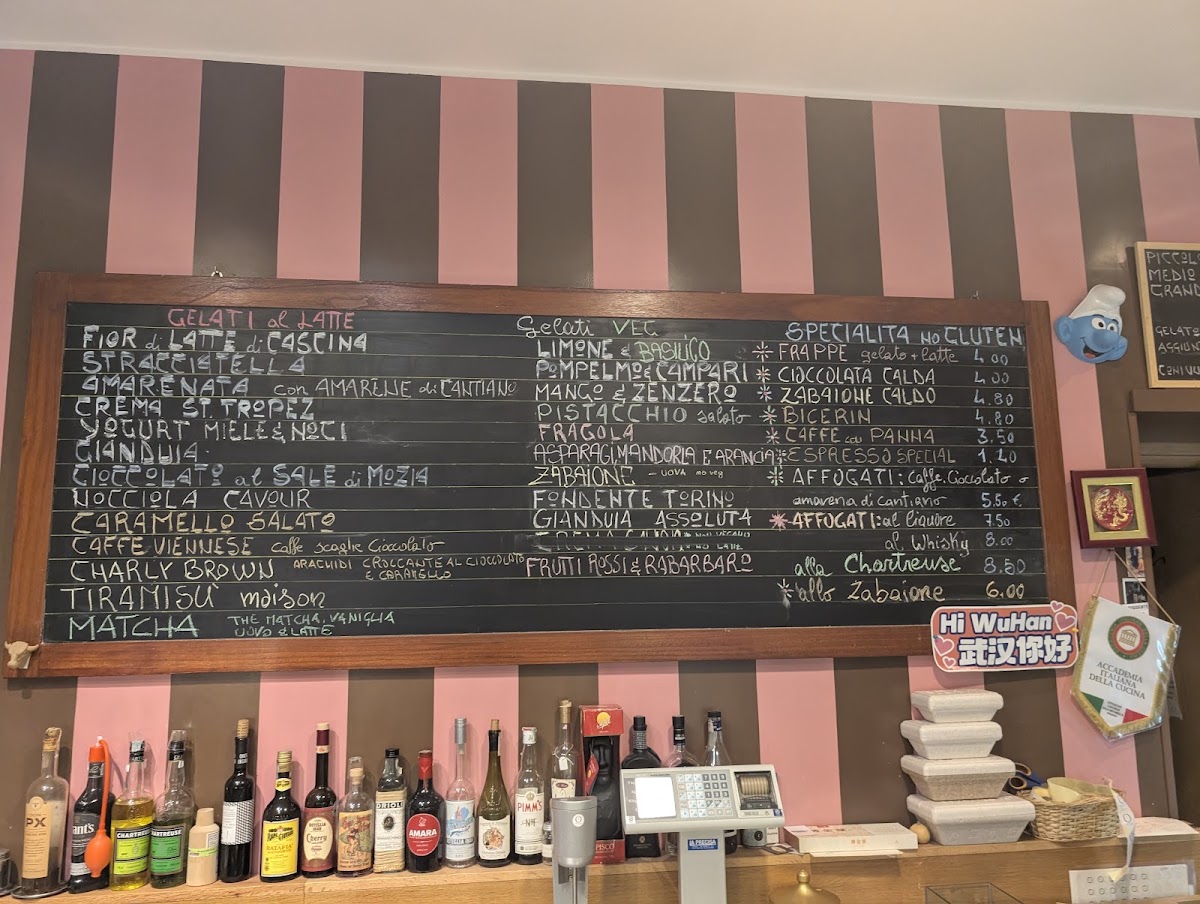 GELATI al LATTE
FIOR di LATTE di CASCINA
STRACCIATELLA
AMARENATA con AMARENE di CANTIANO
CREMA ST. TROPEZ
YOGURT MIELE & NOCI
GIANDUIA
CIOCCOLATO al SALE di MOZIA
NOCCIOLA CAVOUR
CARAMELLO SALATO
CAFFE VIENNESE caffe scaglie Cioccolato
CHARLY BROWN ARACHIDI CROCCANTE AL CIOCCOLATO
E CARAMELLO
TIRAMISU maison
MATCHA THE MATCHA, VANIGLIA
UOVO & LATTE
Gelati VEG
LIMONE & BASILICO
POMPELMO & CAMPARI
MANGO & ZENZERO
PISTACCHIO salato
FRAGOLA
ASPARAGI, MANDORLA E ARANCIA
ZABAIONE - UOVA no veg
FONDENTE TORINO
GIANDUIA ASSOLUTA
FRUTTI ROSSI & RABARBARO
SPECIALITA NO GLUTEN
FRAPPE gelato + latte 4,00
CIOCCOLATA CALDA 4,00
ZABAIONE CALDO 4,80
BICERIN 4,80
CAFFE con PANNA 3,50
ESPRESSO SPECIAL 1,20
AFFOGATI: Caffe, Cioccolato o
amarena di cantiano 5,50 €
AFFOGATI: al liquore 7,50
al Whisky 8,00
alla Chartreuse 8,50
allo Zabaione 6,00
PICCOLO
MEDIO
GRAND
GELATO
AGGIUN
CON
Hi WuHan
武汉你好
ACCADEMIA
ITALIANA
DELLA CUCINA
PX
CHARTREUSE
CHARTREUSE
RATAFIA
Cherry
AMARA
PIMM'S
Nº1
PISCO
LA PRECISA